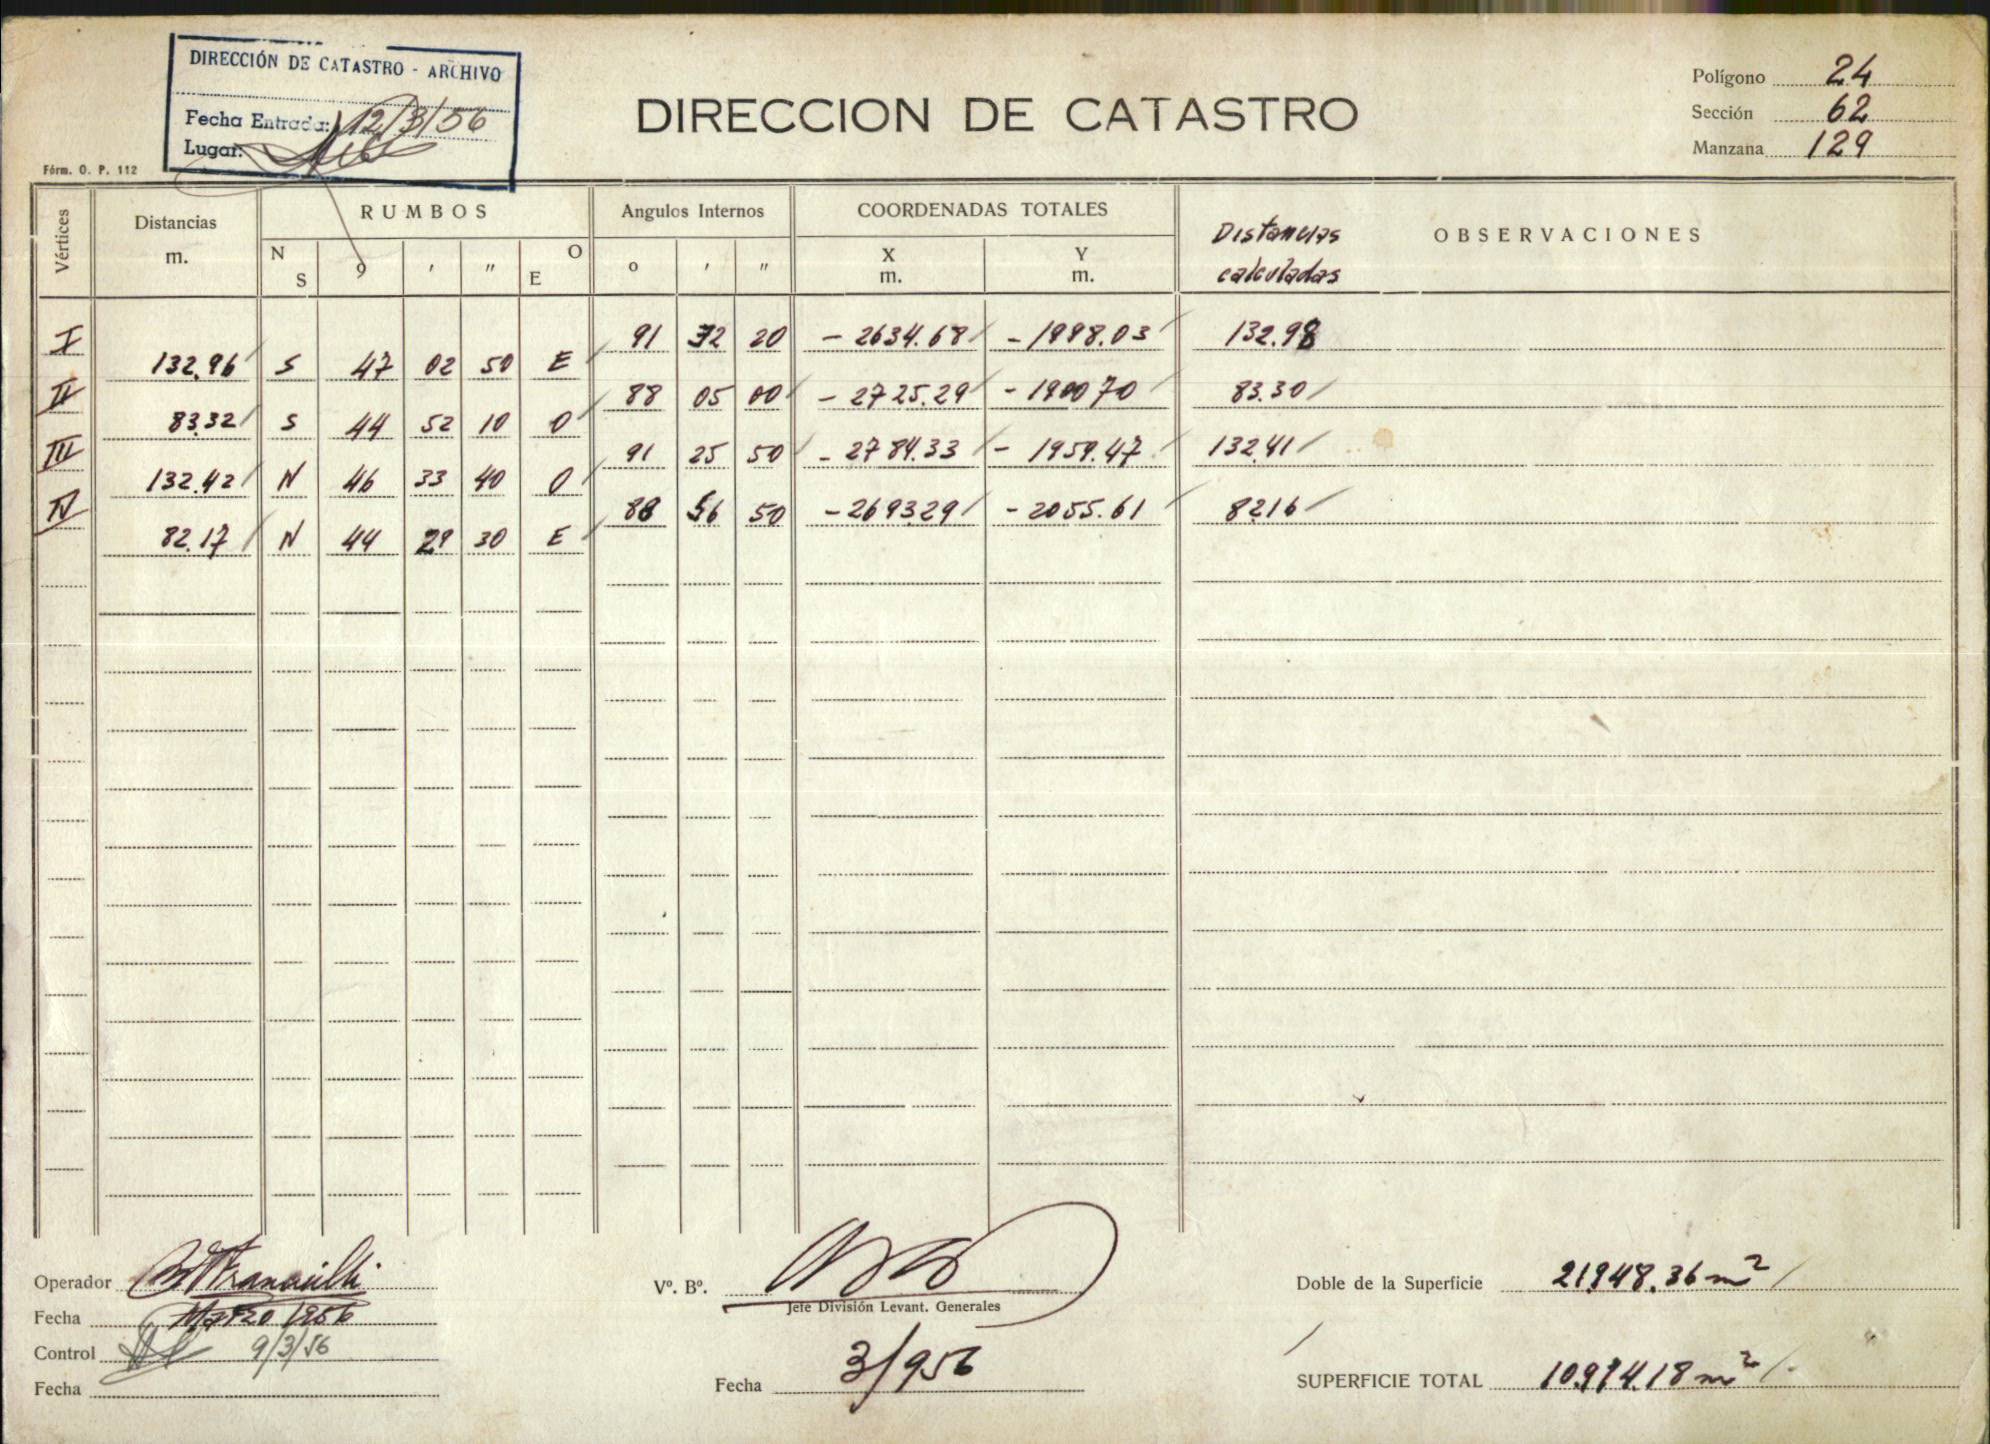 DIRECCIÓN DE CATASTRO - ARCHIVO
Fecha Entrada: 12/3/56
Lugar:
Fórm. O. P. 112
DIRECCION DE CATASTRO
Polígono 24
Sección 62
Manzana 129
Vértices
Distancias
m.
RUMBOS
N
S
º
'
"
O
E
Angulos Internos
º
'
"
COORDENADAS TOTALES
X
m.
Y
m.
Distancias
calculadas
OBSERVACIONES
I 91 32 20 - 2634.68 - 1998.03 132.98
132.96 S 47 02 50 E
II 88 05 00 - 2725.29 - 1900 70 83.30
83.32 S 44 52 10 O
III 91 25 50 - 2784.33 - 1959.47 132.41
132.42 N 46 33 40 O
IV 88 56 50 - 2693.29 - 2055.61 82.16
82.17 N 44 29 30 E
Operador
Fecha Marzo 1956
Control 9/3/56
Fecha
Vº. Bº.
Jefe División Levant. Generales
Fecha 3/956
Doble de la Superficie 21948.36 m²
SUPERFICIE TOTAL 10.974.18 m²